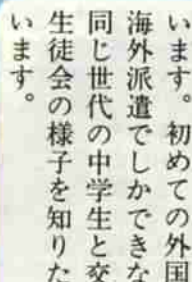 います。初めての外国
海外派遣でしかできな
同じ世代の中学生と交
生徒会の様子を知りた
います。